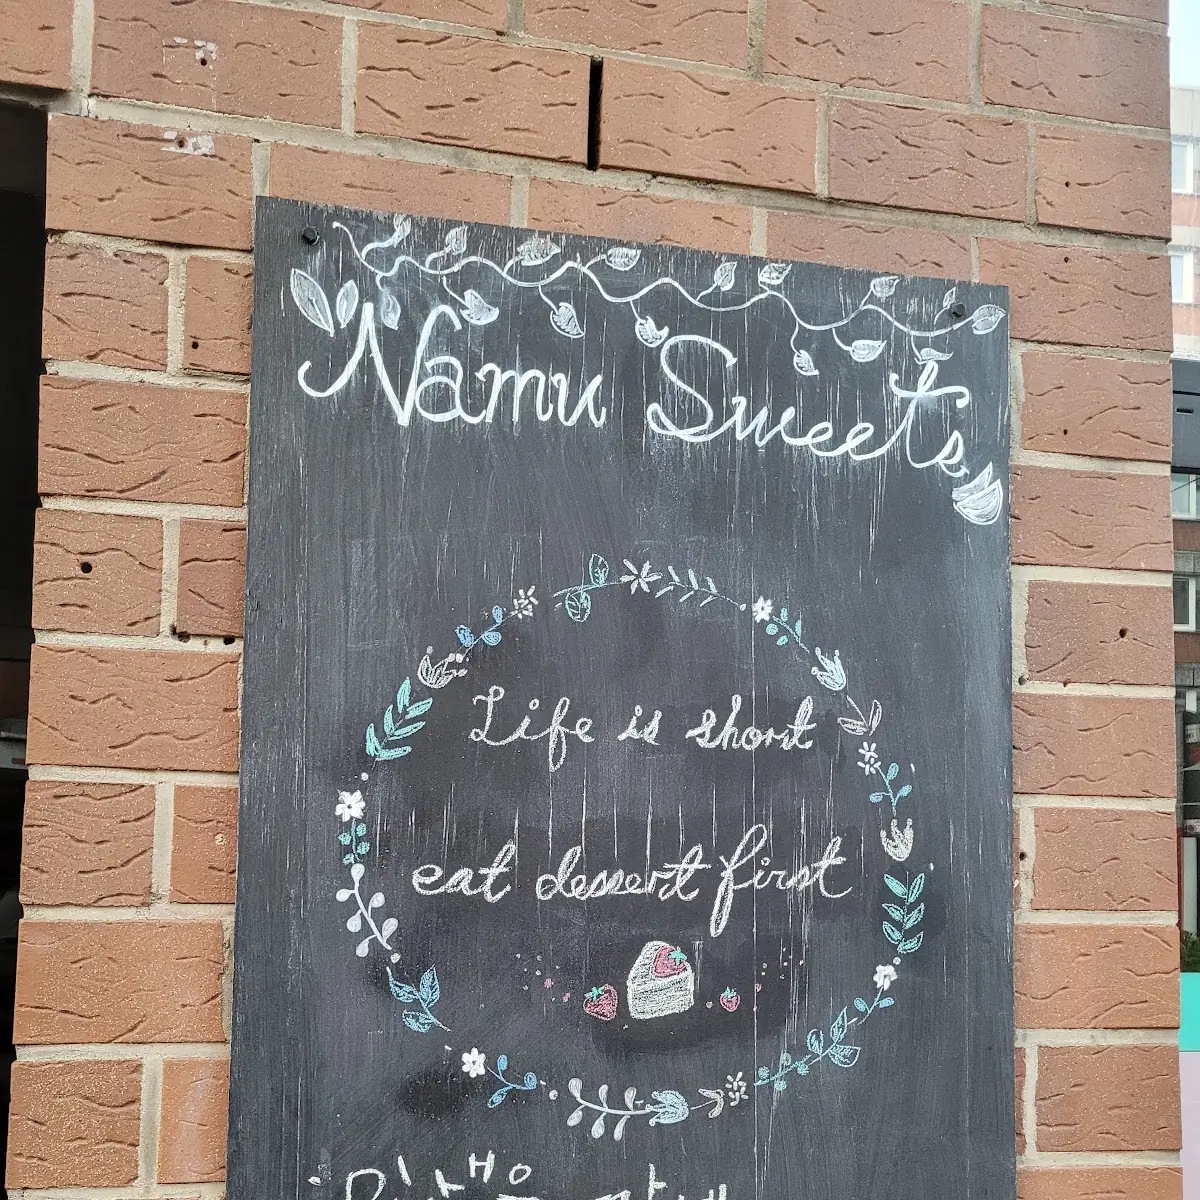 Namu Sweets
Life is short
eat dessert first